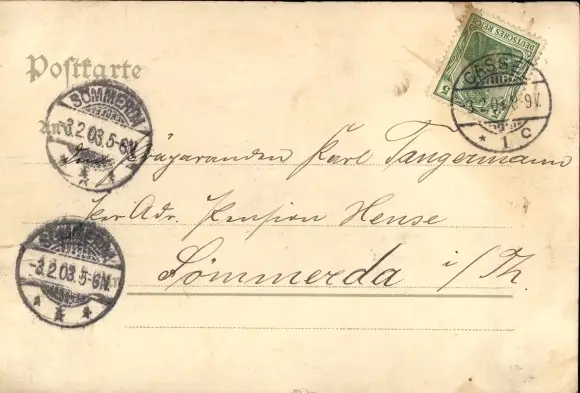 Postkarte
DEUTSCHES REICH
5
5
CASSEL
3.2.03. 8-9V.
* 1 C
SÖMMERDA
-3.2.03.5-6N.
***
An
den Präparanden Karl Tangermann
per Adr. Pension Hense
Sömmerda i/Th.
SÖMMERDA
-3.2.03.5-6N.
***